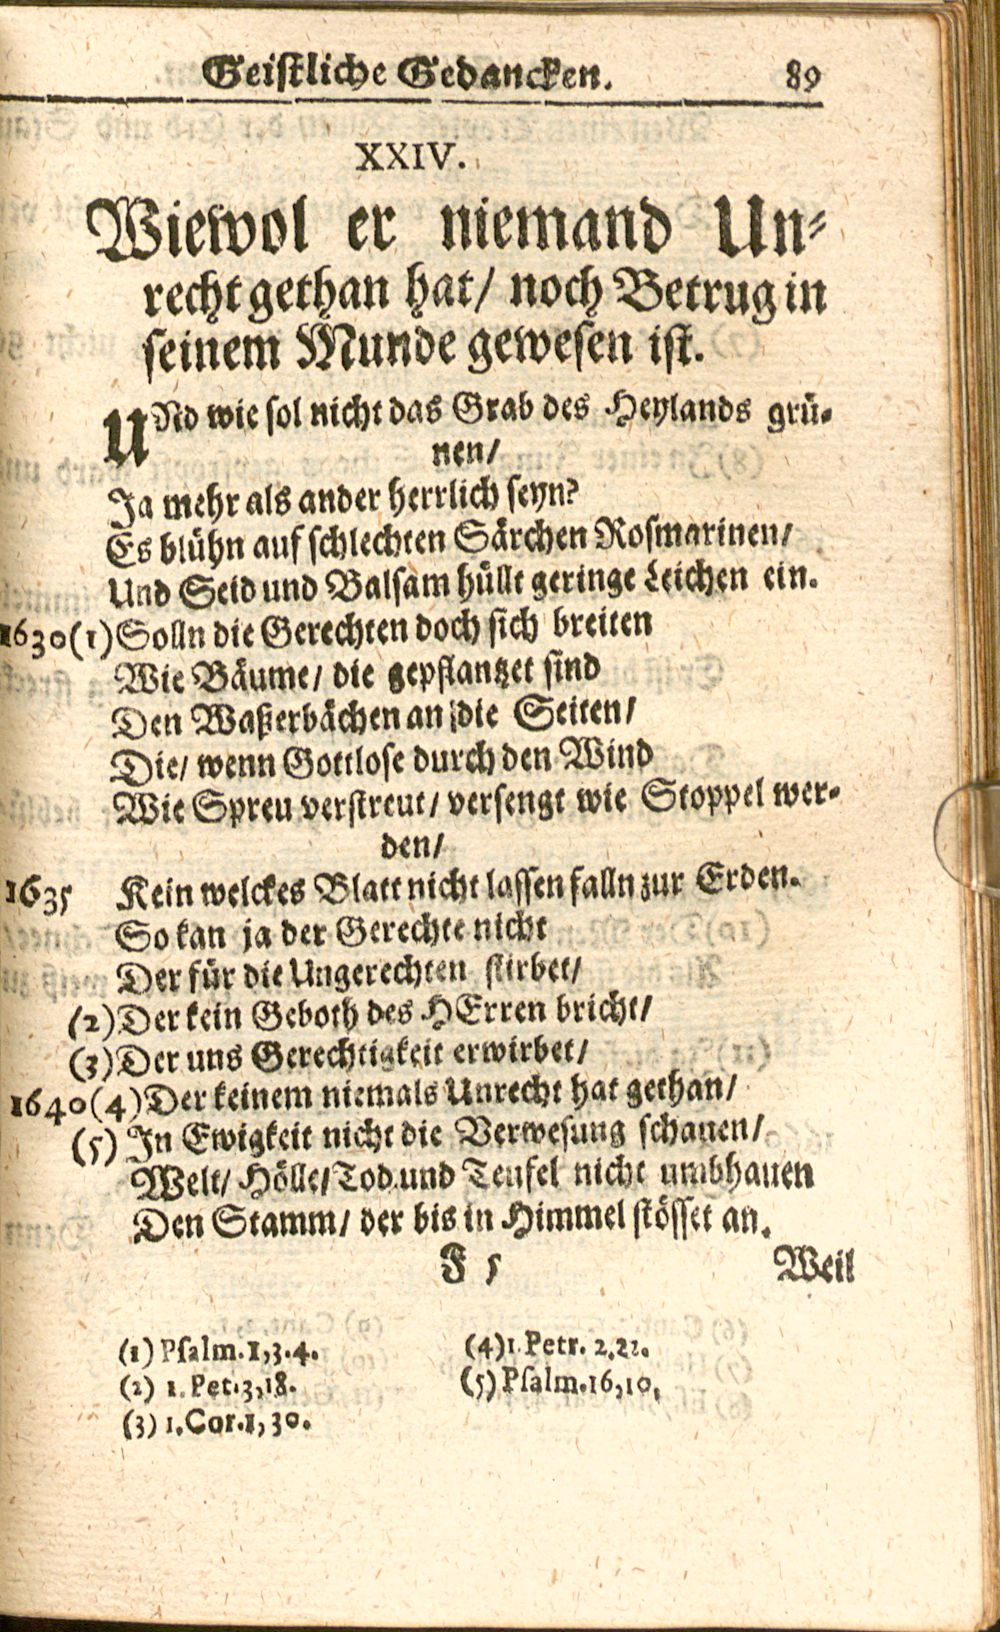 Geistliche Gedancken. 89
XXIV.
Wiewol er niemand Un-
recht gethan hat/ noch Betrug in
seinem Munde gewesen ist.
UNd wie sol nicht das Grab des Heylands grü-
nen/
Ja mehr als ander herrlich seyn?
Es blühn auf schlechten Särchen Rosmarinen/
Und Seid und Balsam hüllt geringe Leichen ein.
1630 (1) Solln die Gerechten doch sich breiten
Wie Bäume/ die gepflantzet sind
Den Waßerbächen an die Seiten/
Die/ wenn Gottlose durch den Wind
Wie Spreu verstreut/ versengt wie Stoppel wer-
den/
1635 Kein welckes Blatt nicht lassen falln zur Erden.
So kan ja der Gerechte nicht
Der für die Ungerechten stirbet/
(2) Der kein Geboth des HErren bricht/
(3) Der uns Gerechtigkeit erwirbet/
1640 (4) Der keinem niemals Unrecht hat gethan/
(5) In Ewigkeit nicht die Verwesung schauen/
Welt/ Hölle/ Tod und Teufel nicht umbhauen
Den Stamm/ der bis in Himmel stösset an.
F 5 Weil
(1) Psalm. 1, 3. 4. (4) 1. Petr. 2, 22.
(2) 1. Pet. 3, 18. (5) Psalm. 16, 10,
(3) 1. Cor. 1, 30.